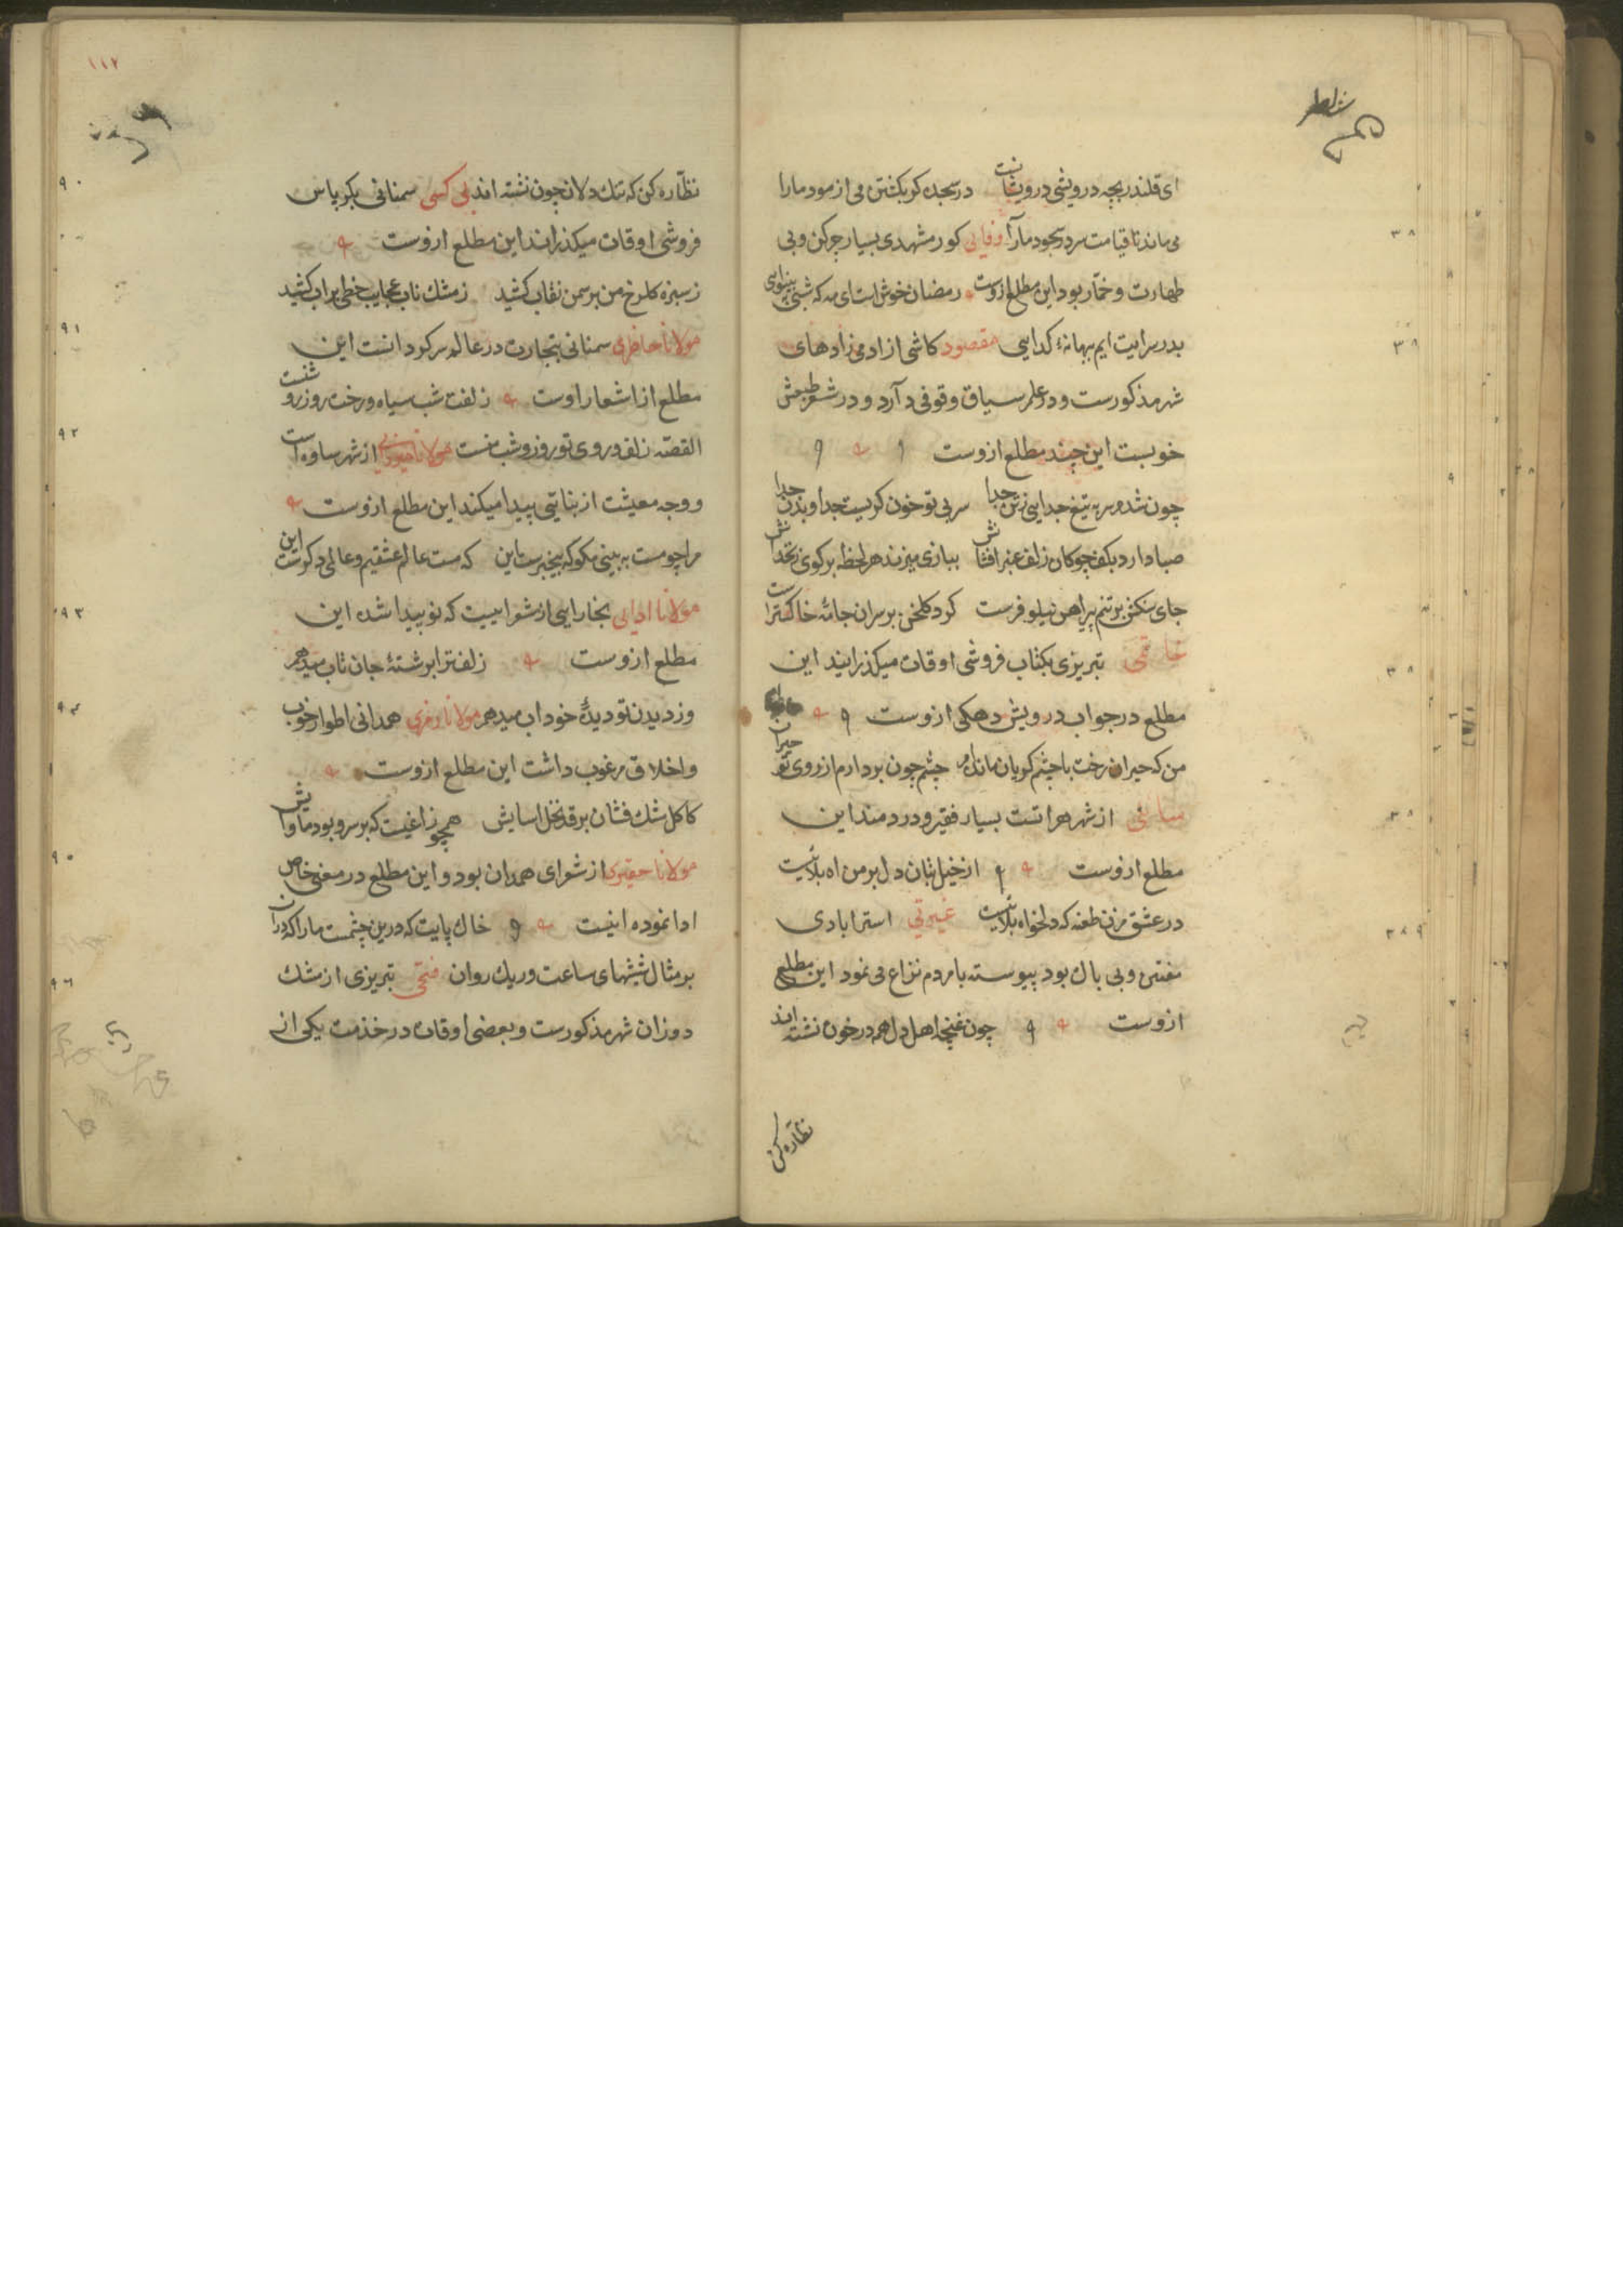 ای قلندر بچه درویشی درویشانت در سجده کر بکشتن می ازمود مارا
می ماند تا قیامت سر در سجود مارا وفایی کور مشهدی بسیار چرکن وبی
طهارت وخمّار بود این مطلع ازوست رمضان خوش است ای مه که شبی به بینوایی
بدر سرایت ایم ببهانهٔ کدایی مقصود کاشی از ادمی زادهای
شهر مذکورست ودر علم سیاق وقوفی دارد ودر شعر طبعش
خوبست این چند مطلع ازوست
چون شد سر به تیغ جدایی زتن جدا سر بی تو خون کریست جدا وبدن جدا
صبا دارد بکف چوکان زلف عنبر افشانش ببازی میزند هر لحظه بر کوی زنخدانش
جای سکنش بر تنم پیراهن نیلوفرست کرد کلخن بر سر ان جامه خاکسترست
خاتمی تبریزی بکتاب فروشی اوقات میکذرانید این
مطلع در جواب درویش دهکی ازوست
من که حیران رخت با چشم کریان مانده ام چشم چون بردارم از روی تو حیران
سائلی از شهر هراتست بسیار فقیر ودردمند این
مطلع ازوست از خیل بتان دل بر من اه بلاییست
در عشق مزن طعنه که دلخواه بلاییست غیرتی استرابادی
مفتن وبی باک بود پیوسته با مردم نزاع می نمود این مطلع
ازوست چون غنچه اهل دل همه در خون نشسته اند
نظاره کن
١١٧
نظّاره کن که تنک دلان چون نشسته اند بی کسی سمنانی بکرباس
فروشی اوقات میکذراند این مطلع ازوست
ز سبزه کلرخ من بر سمن نقاب کشید ز مشک ناب عجایب خطی بر اب کشید
مولانا سمنانی بتجارت در عالم سرکردانست این
مطلع از اشعار اوست زلفت شب سیاه ورخت روز روشنست
القصّه زلف وروی تو روز وشب منست مولانا از شهر ساوه است
ووجه معیشت از بنایی پیدا میکند این مطلع ازوست
مرا چو مست به بینی مکو که بیخبرست این که مست عالم عشقیم وعالمی دکرست این
مولانا ادایی بخارایی از شعراییست که نو پیدا شده این
مطلع ازوست زلف ترا بر شتهٔ جان تاب میدهم
وز دیدن تو دیدهٔ خود اب میدهم مولانا همدانی اطوار خوب
واخلاق مرغوب داشت این مطلع ازوست
کاکل مشک فشان بر قد نخل اسایش همچو زاغیست که بر سرو بود ماوایش
مولانا حقیری از شعرای همدان بود واین مطلع در معنی خاص
ادا نموده اینست خاک پایت که درین چشمست مارا که دران
بر مثال شیشهای ساعت وریک روان فتحی تبریزی از مشک
دوزان شهر مذکورست وبعضی اوقات در خذمت یکی از